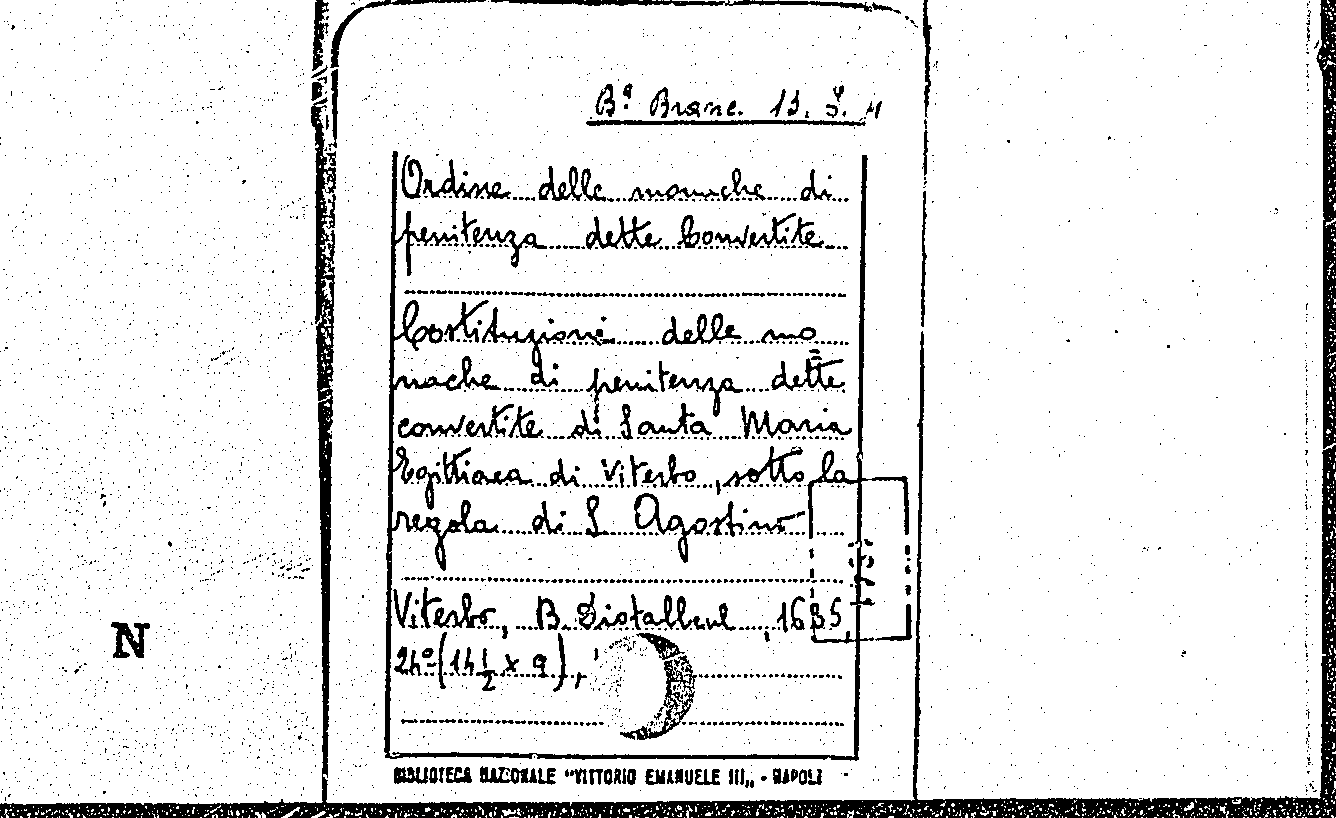 Bª Branc. 13.
Ordine delle monache di
penitenza dette Convertite
Costituzioni delle mo=
nache di penitenza dette
convertite di Santa Maria
Egittiaca di Viterbo, sotto la
regola di S. Agostino
Viterbo, B. Diotallevi, 1635,
24º (14 1/2 x 9),
N
BIBLIOTECA NAZIONALE "VITTORIO EMANUELE III„ - NAPOLI